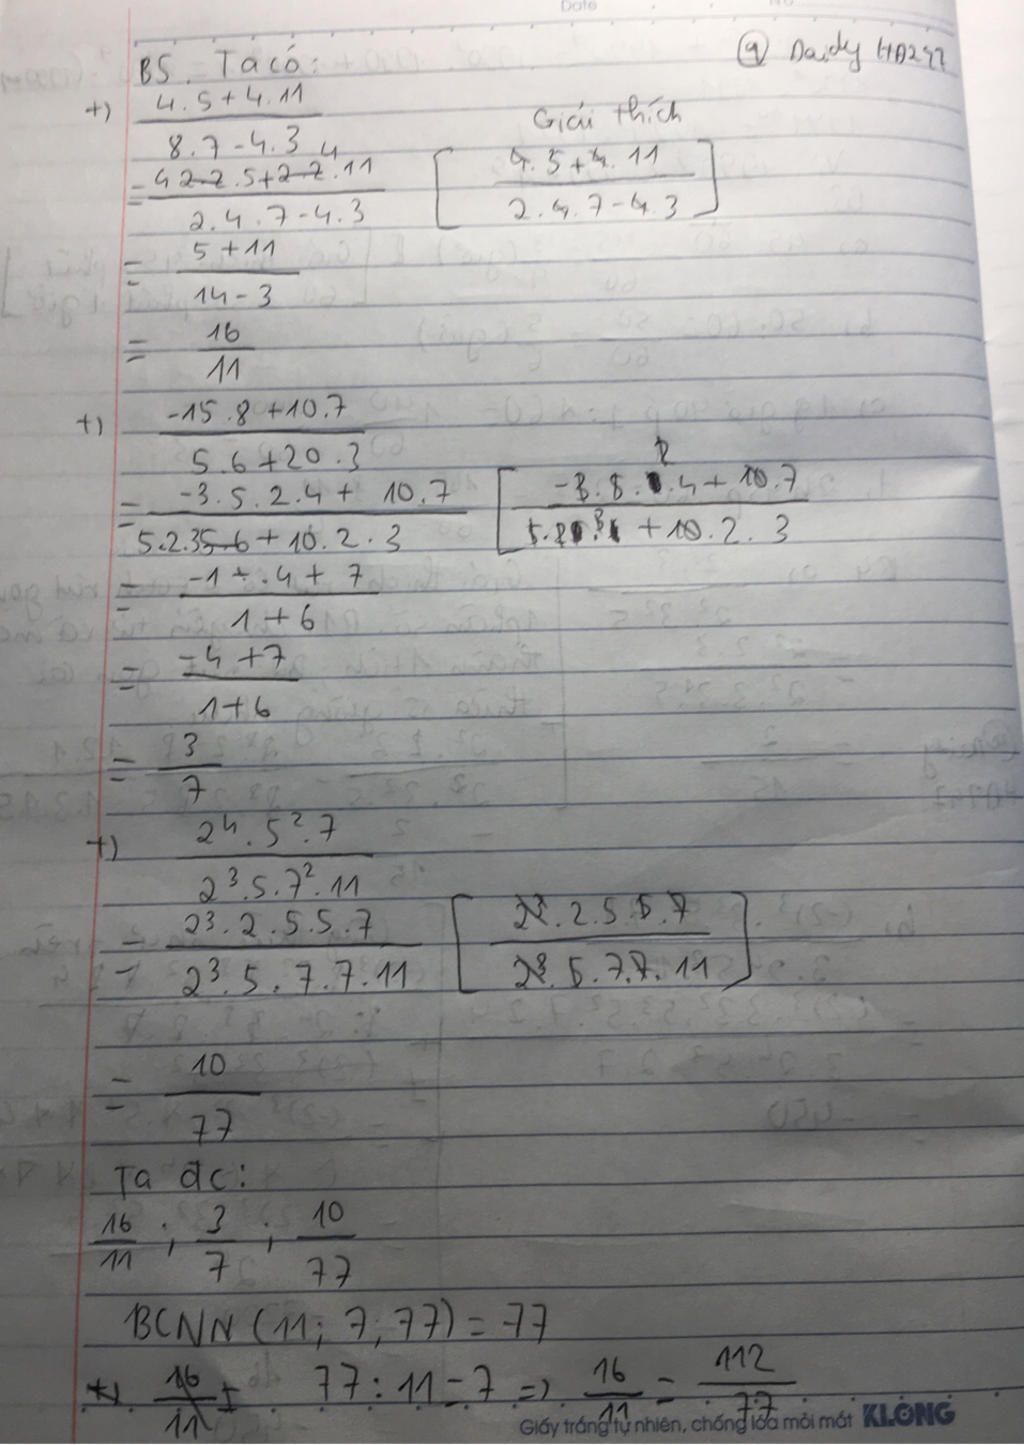 Date
@ Daidy HD247
B5. Ta có:
+) 4.5+4.11 / 8.7-4.3
Giải thích
= 4 2.2.5+2.2.11 4 / 2.4.7-4.3 [4.5+4.11 / 2.4.7-4.3]
= 5+11 / 14-3
= 16 / 11
+) -15.8+10.7 / 5.6+20.3
= -3.5.2.4+10.7 / 5.2.3 5 6+10.2.3 [-3.5.2.4+10.7 / 5.2.3+10.2.3
= -1 ÷ .4+7 / 1+6
= -4+7 / 1+6
= 3 / 7
+) 2⁴.5².7 / 2³.5.7².11
= 2³.2.5.5.7 / 2³.5.7.7.11 [2³.2.5.5.7 / 2³.5.7.7.11]
= 10 / 77
Ta đc:
16/11 ; 3/7 ; 10/77
BCNN (11; 7; 77) = 77
*) 16/11 ± 77:11=7 => 16/11 = 112/77
Giấy trắng tự nhiên, chống lóa mỏi mắt KLONG